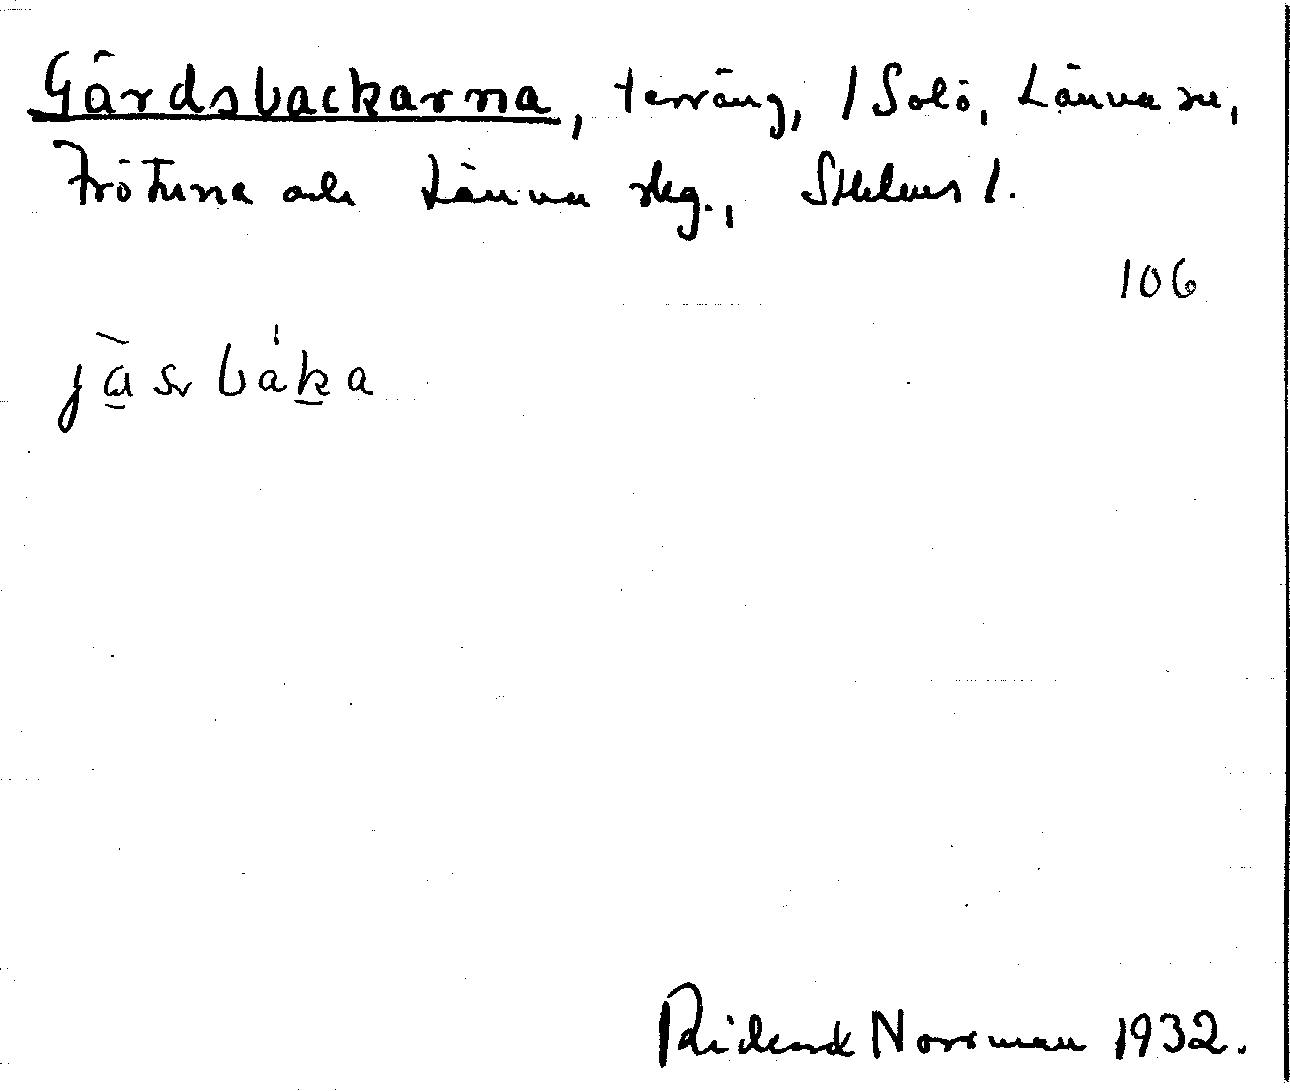 Gärdsbackarna, terräng, / Solö, Länna sn,
Frötuna och Länna skg., Sthlms l.
106
jäsbaka
Rickard Norrman 1932.